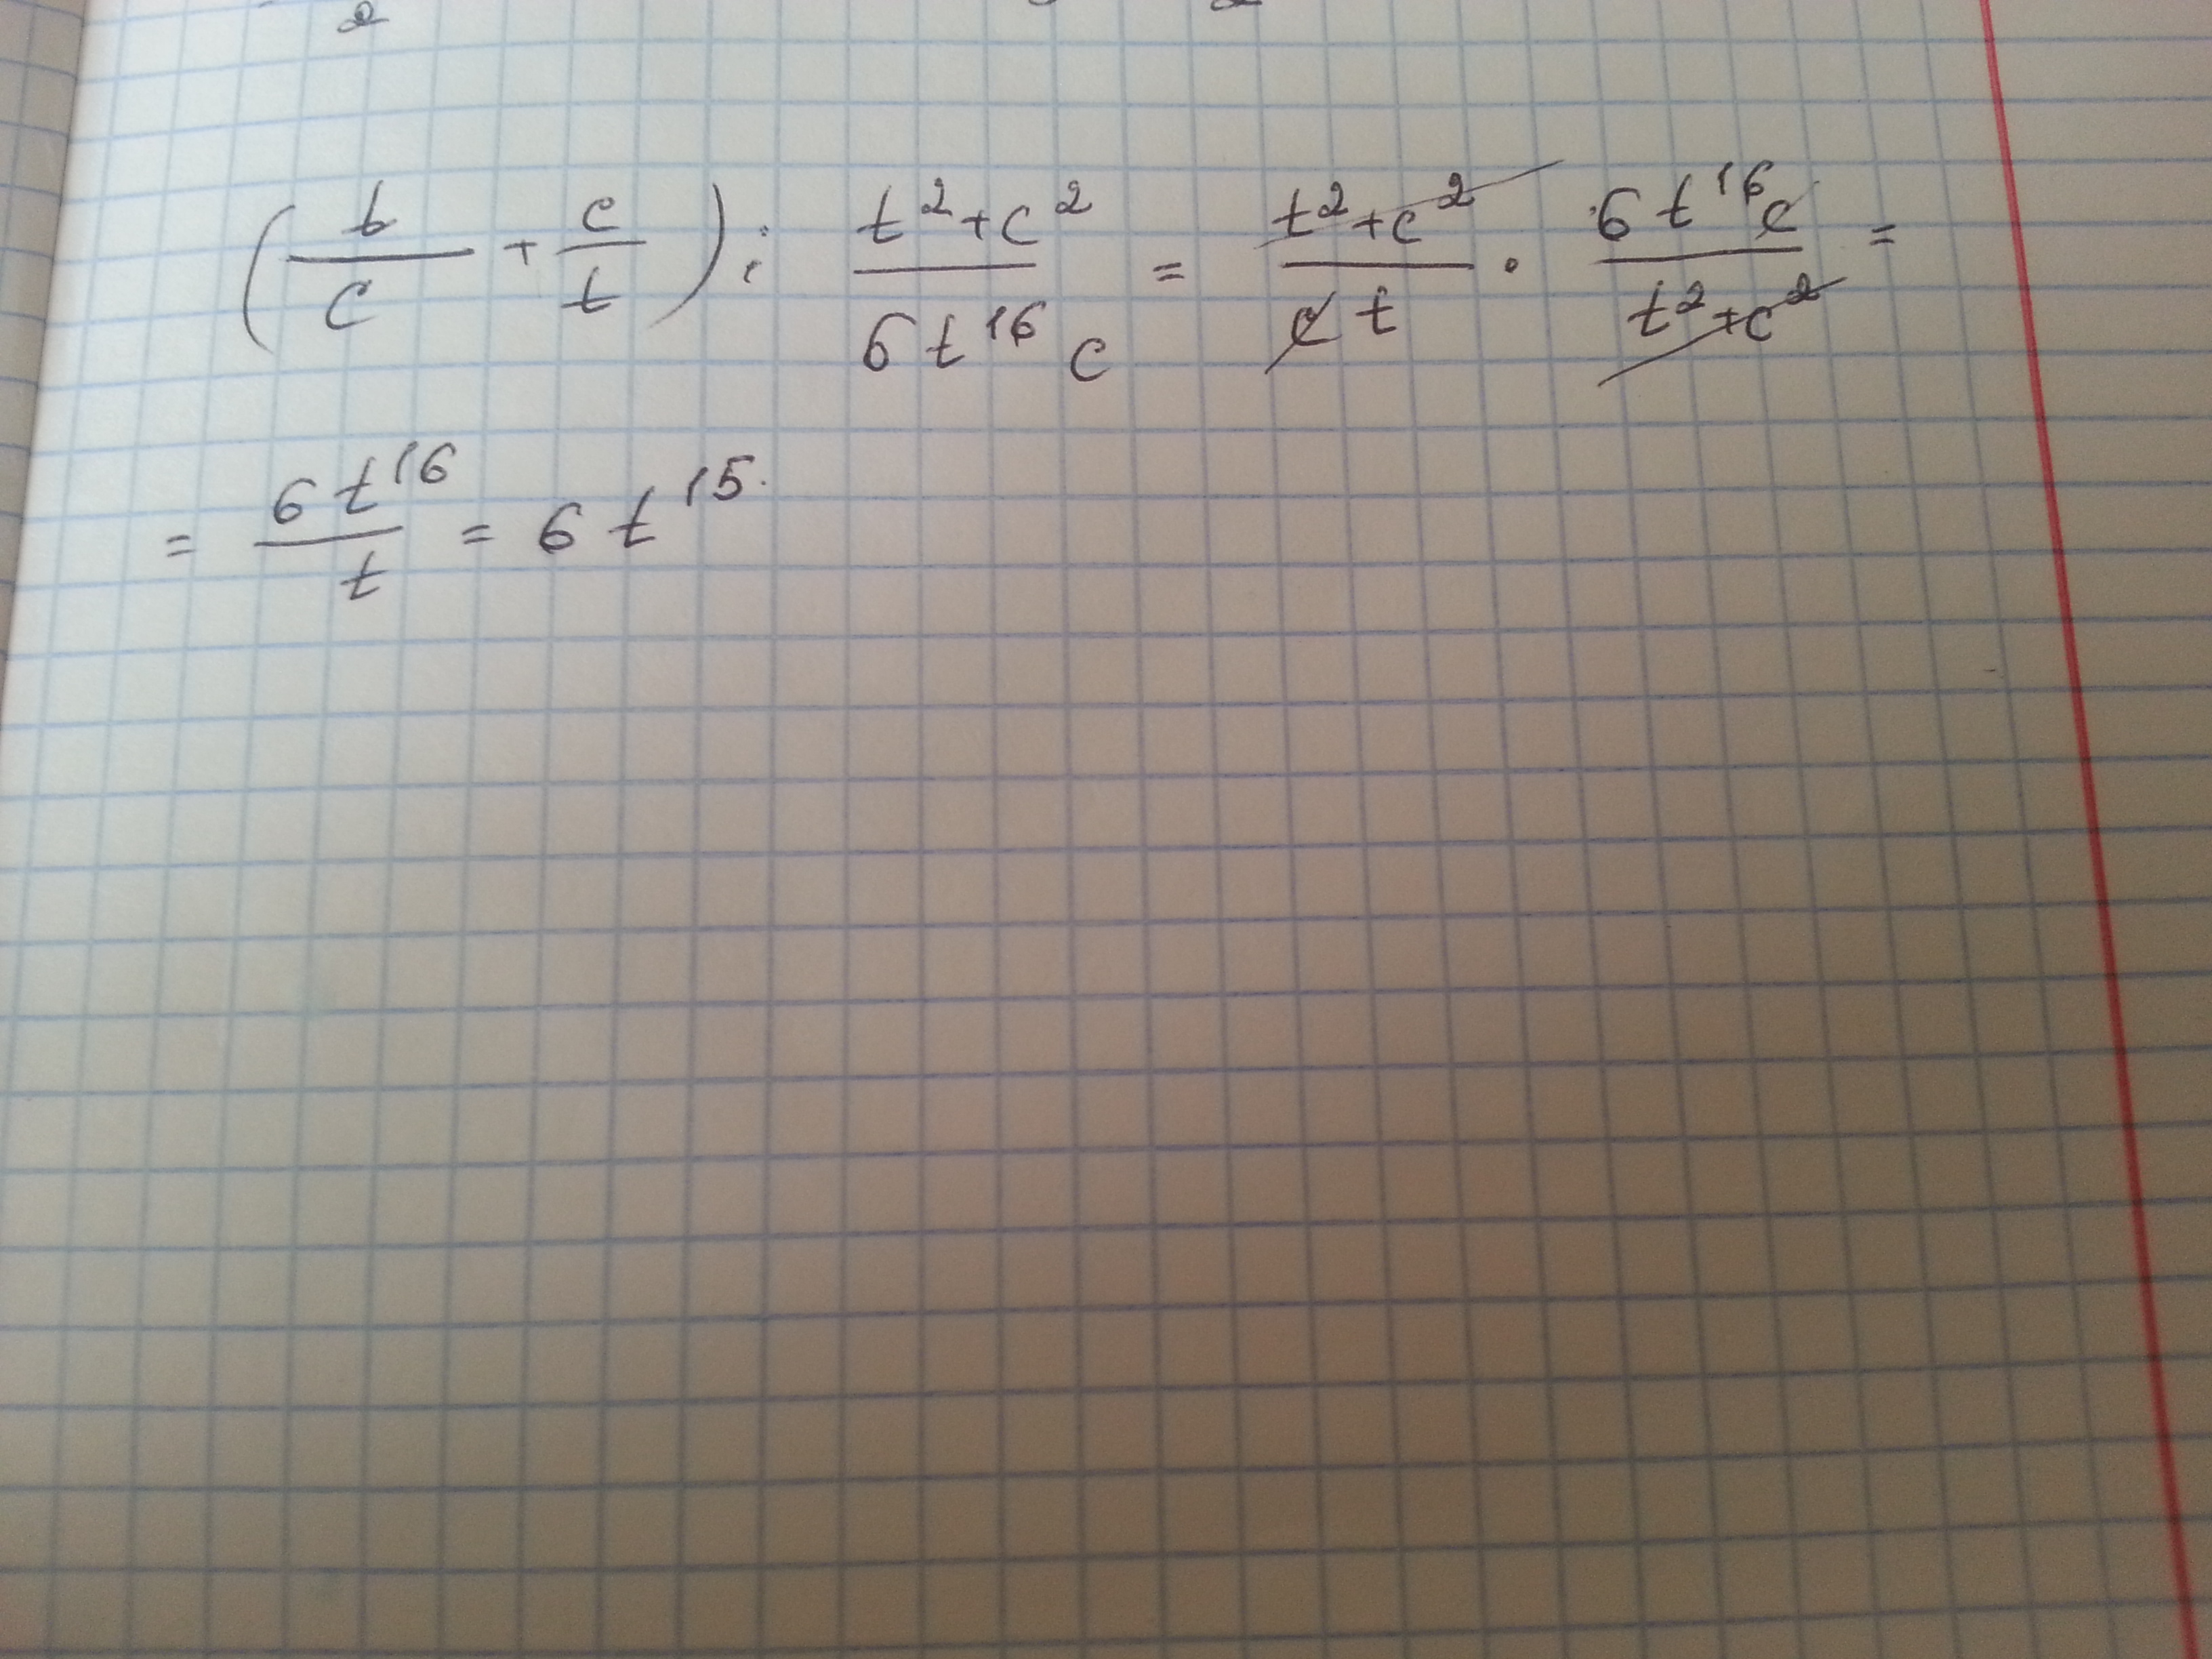 2 2
(t/c + c/t) : (t²+c²)/(6t¹⁶c) = (t²+c²)/(ct) · (6t¹⁶c)/(t²+c²) =
= 6t¹⁶/t = 6t¹⁵.